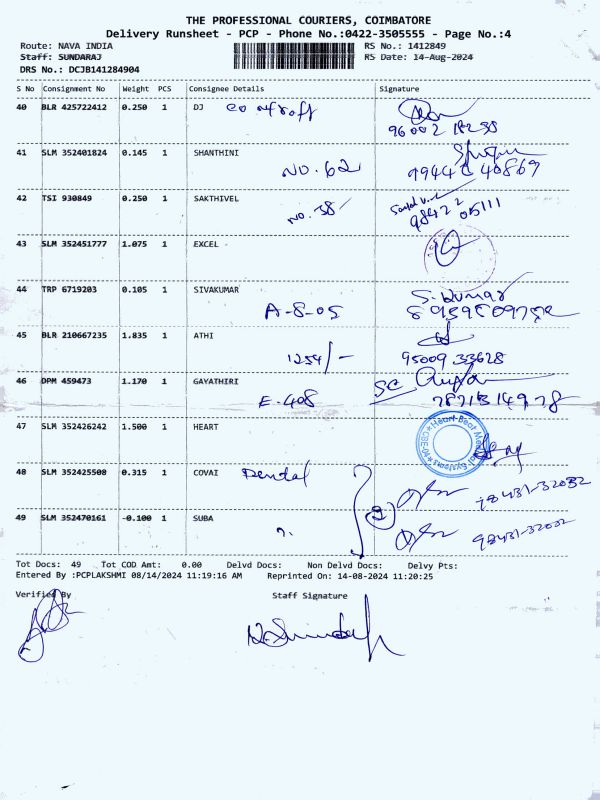 THE PROFESSIONAL COURIERS, COIMBATORE
Delivery Runsheet - PCP - Phone No.:0422-3505555 - Page No.:4
Route: NAVA INDIA RS No.: 1412849
Staff: SUNDARAJ RS Date: 14-Aug-2024
DRS No.: DCJB141284904
S No Consignment No Weight PCS Consignee Details Signature
40 BLR 425722412 0.250 1 DJ
41 SLM 352401824 0.145 1 SHANTHINI
NO. 62
42 TSI 930849 0.250 1 SAKTHIVEL
NO. 38/
43 SLM 352451777 1.075 1 EXCEL
44 TRP 6719203 0.105 1 SIVAKUMAR S. Kumar
A-8-05
45 BLR 210667235 1.835 1 ATHI
1254/- 95009 33628
46 DPM 459473 1.170 1 GAYATHIRI
E-408
47 SLM 352426242 1.500 1 HEART Heart-Beat
48 SLM 352425508 0.315 1 COVAI Dental
49 SLM 352470161 -0.100 1 SUBA
Tot Docs: 49 Tot COD Amt: 0.00 Delvd Docs: Non Delvd Docs: Delvy Pts:
Entered By :PCPLAKSHMI 08/14/2024 11:19:16 AM Reprinted On: 14-08-2024 11:20:25
Verified By Staff Signature